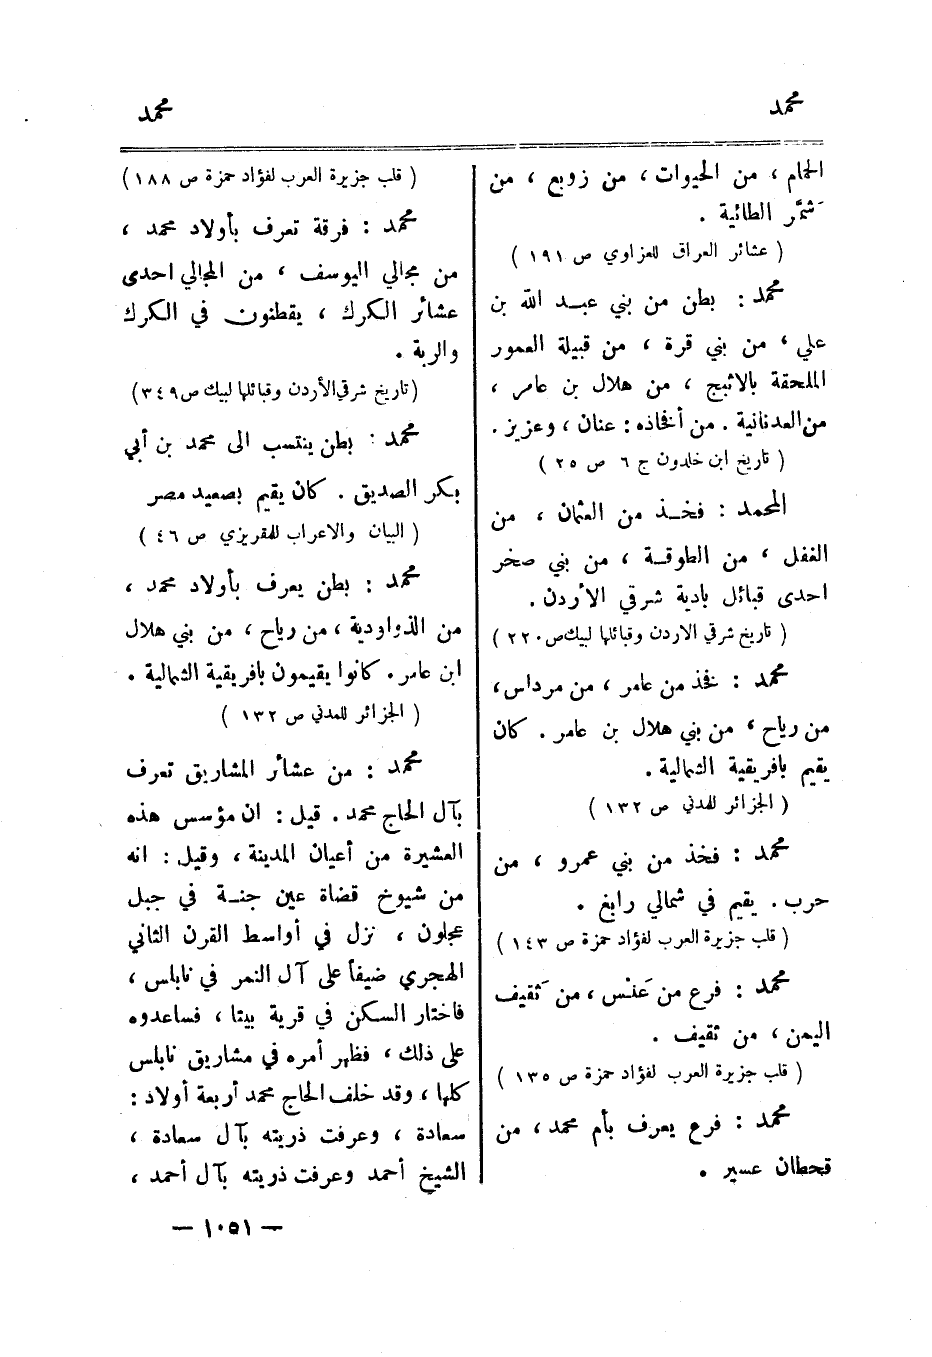 محمد
محمد
الحمام ، من الحيوات ، من زوبع ، من
شمَّر الطائية .
( عشائر العراق للعزاوي ص ١٩١ )
محمد : بطن من بني عبد الله بن
علي ، من بني قرة ، من قبيلة العمور
الملحقة بالاثبج ، من هلال بن عامر ،
من العدنانية . من أفخاذه : عنان ، وعزيز .
( تاريخ ابن خلدون ج ٦ ص ٢٥ )
المحمد : فخذ من العثمان ، من
الغفل ، من الطوقة ، من بني صخر
احدى قبائل بادية شرقي الأردن .
( تاريخ شرقي الاردن وقبائلها لبيك ص ٢٢٠ )
محمد : فخذ من عامر ، من مرداس ،
من رياح ، من بني هلال بن عامر . كان
يقيم بافريقية الشمالية .
( الجزائر للمدني ص ١٣٢ )
محمد : فخذ من بني عمرو ، من
حرب . يقيم في شمالي رابغ .
( قلب جزيرة العرب لفؤاد حمزة ص ١٤٣ )
محمد : فرع من عَنْس ، من ثَقيف
اليمن ، من ثقيف .
( قلب جزيرة العرب لفؤاد حمزة ص ١٣٥ )
محمد : فرع يعرف بأم محمد ، من
قحطان عسير .
( قلب جزيرة العرب لفؤاد حمزة ص ١٨٨ )
محمد : فرقة تعرف بأولاد محمد ،
من مجالي اليوسف ، من المجالي احدى
عشائر الكرك ، يقطنون في الكرك
والربة .
( تاريخ شرقي الأردن وقبائلها لبيك ص ٣٤٩ )
محمد : بطن ينتسب الى محمد بن أبي
بكر الصديق . كان يقيم بصعيد مصر
( البيان والاعراب للمقريزي ص ٤٦ )
محمد : بطن يعرف بأولاد محمد ،
من الذواودية ، من رياح ، من بني هلال
ابن عامر . كانوا يقيمون بافريقية الشمالية .
( الجزائر للمدني ص ١٣٢ )
محمد : من عشائر المشاريق تعرف
بآل الحاج محمد . قيل : ان مؤسس هذه
العشيرة من أعيان المدينة ، وقيل : انه
من شيوخ قضاة عين جنة في جبل
عجلون ، نزل في أواسط القرن الثاني
الهجري ضيفاً على آل النمر في نابلس ،
فاختار السكن في قرية بيتا ، فساعدوه
على ذلك ، فظهر أمره في مشاريق نابلس
كلها ، وقد خلف الحاج محمد أربعة أولاد :
سعادة ، وعرفت ذريته بآل سعادة ،
الشيخ أحمد وعرفت ذريته بآل أحمد ،
— ١٠٥١ —